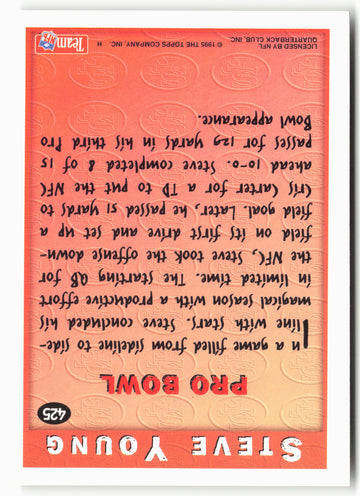 STEVE YOUNG
425
PRO BOWL
In a game filled from sideline to side-
line with stars, Steve concluded his
magical season with a productive effort
in limited time. The starting QB for
the NFC, Steve took the offense down-
field on its first drive and set up a
field goal. Later, he passed 51 yards to
Cris Carter for a TD to put the NFC
ahead 10-0. Steve completed 8 of 15
passes for 129 yards in his third Pro
Bowl appearance.
LICENSED BY NFL
QUARTERBACK CLUB, INC.
© 1995 THE TOPPS COMPANY, INC. H
Team NFL